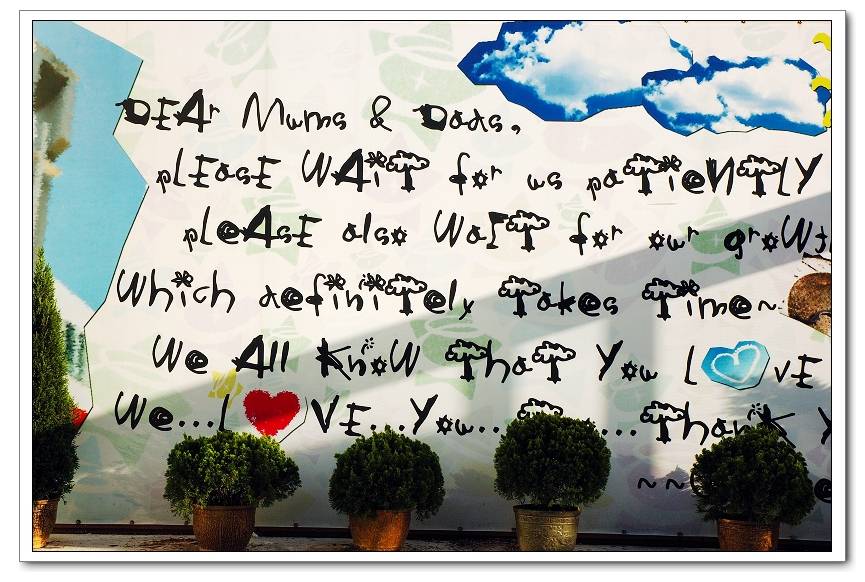 DEAr Mums & Dads,
plEasE WAiT for us paTieNTlY
pleAsE also WaIT for our groWth
Which definiTely Takes Time~
We All KnoW ThaT You LOvE
We...LOVE...You...Too...ThanK
~~